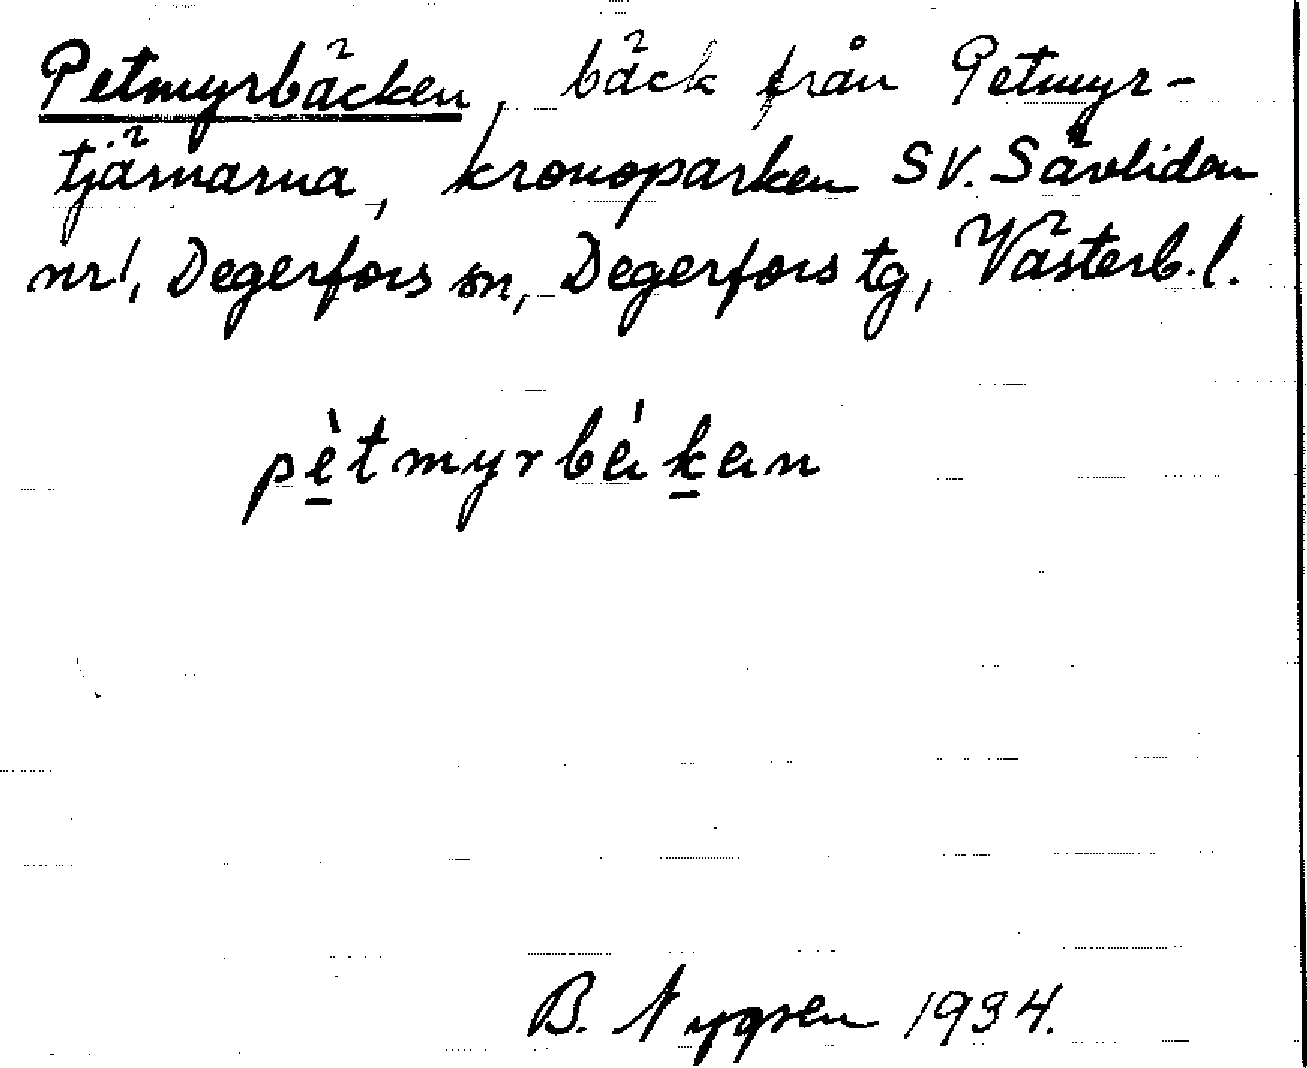 Petmyrbäcken, bäck från Petmyr-
tjärnarna, kronoparken SV. Sävliden
nr 1, Degerfors sn, Degerfors tg, Västerb. l.
pètmyrbákan
B. 1934.